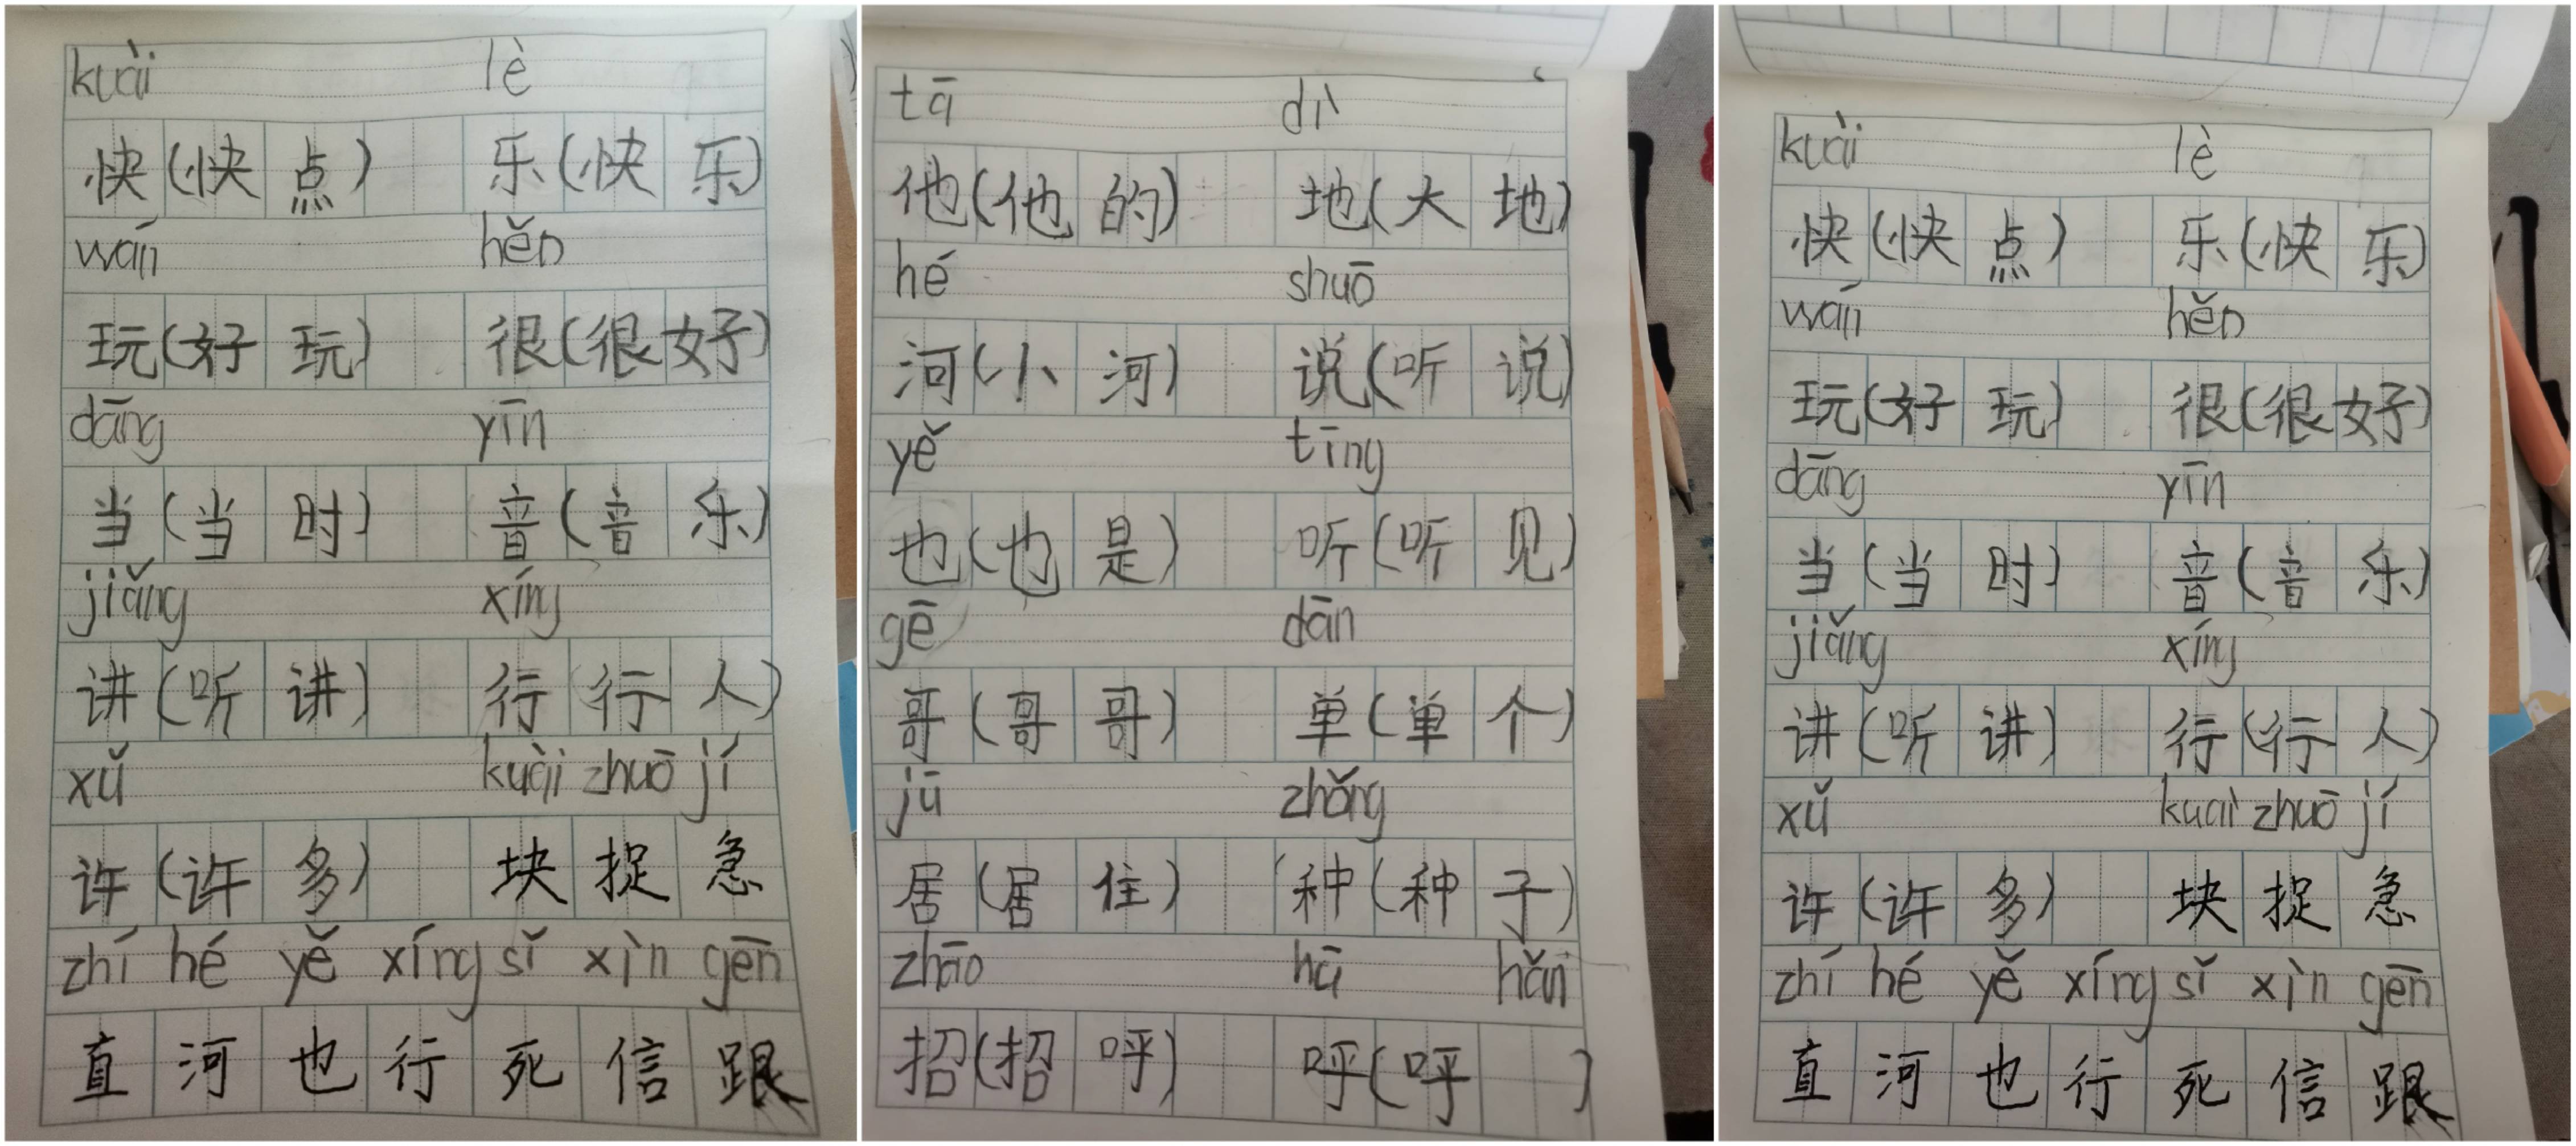 kuài lè
快(快点) 乐(快乐)
wán hěn
玩(好玩) 很(很好)
dāng yīn
当(当时) 音(音乐)
jiǎng xíng
讲(听讲) 行(行人)
xǔ kuài zhuō jí
许(许多) 块捉急
zhí hé yě xíng sǐ xìn gēn
直河也行死信跟
tā dì
他(他的) 地(大地)
hé shuō
河(小河) 说(听说)
yě tīng
也(也是) 听(听见)
gē dān
哥(哥哥) 单(单个)
jū zhǒng
居(居住) 种(种子)
zhāo hū hǎn
招(招呼) 呼(呼 )
kuài lè
快(快点) 乐(快乐)
wán hěn
玩(好玩) 很(很好)
dāng yīn
当(当时) 音(音乐)
jiǎng xíng
讲(听讲) 行(行人)
xǔ kuài zhuō jí
许(许多) 块捉急
zhí hé yě xíng sǐ xìn gēn
直河也行死信跟